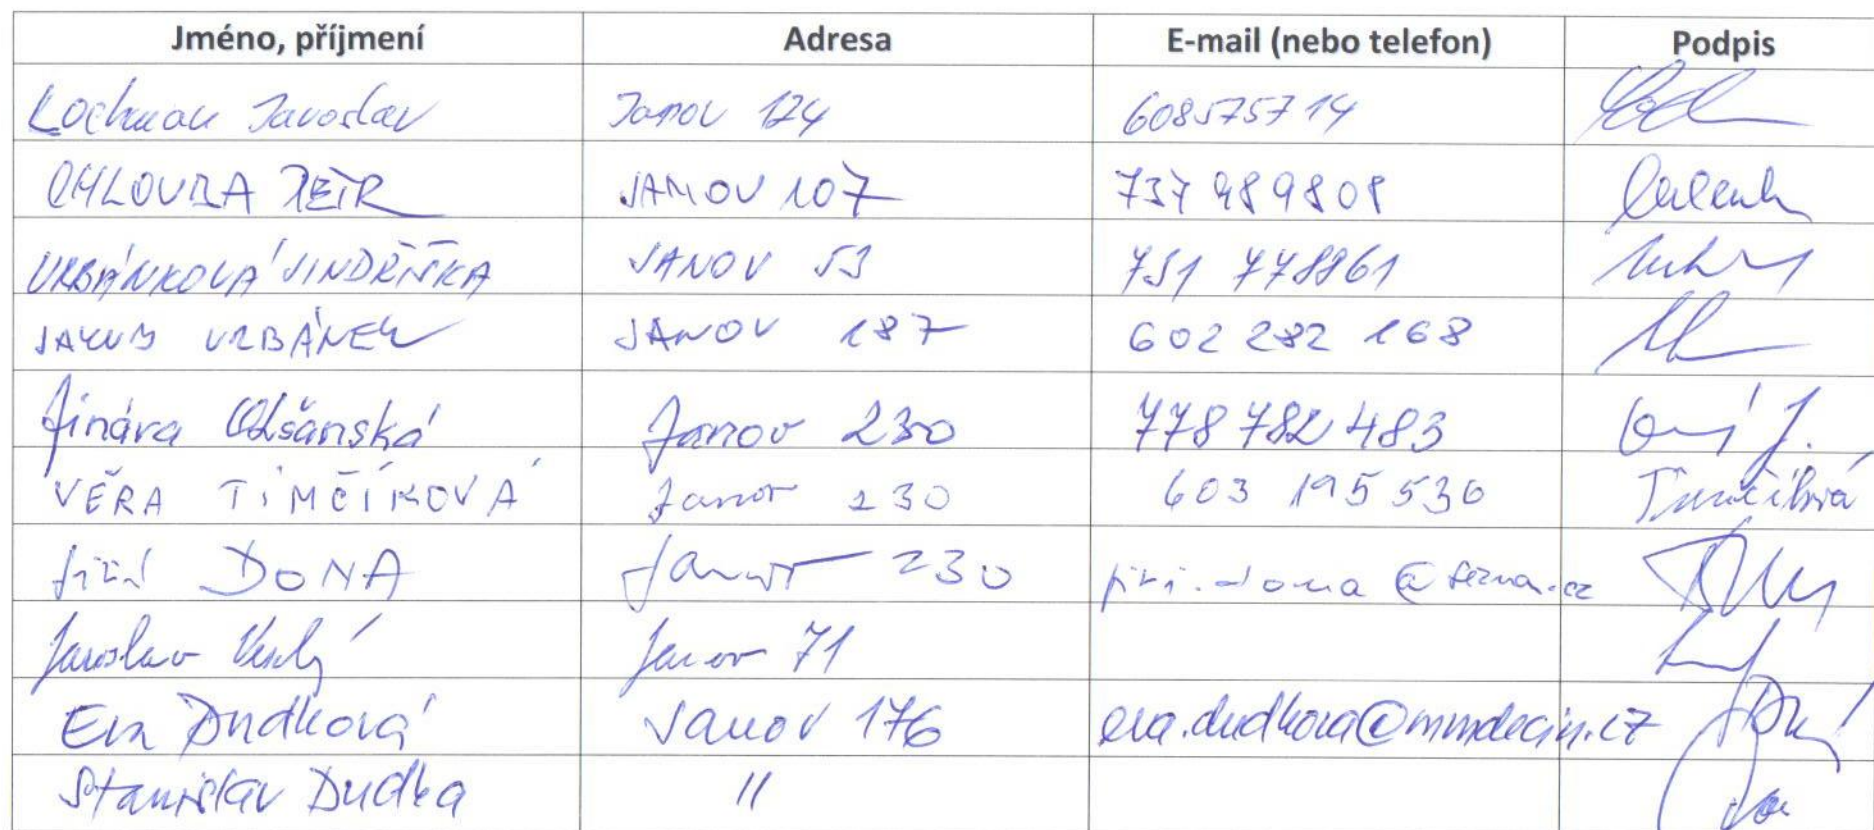 Jméno, příjmení Adresa E-mail (nebo telefon) Podpis
Lochman Jaroslav Janov 124 608575714
CHLOUBA PETR JANOV 107 737 989808
URBÁNKOVÁ JINDŘIŠKA JANOV 53 731 778861
JAKUB URBÁNEK JANOV 187 602 282 168
Olšanská Janov 230 778 782 483
VĚRA TIMČÍKOVÁ Janov 230 603 195 530 Timčíková
Jiří DONA Janov 230
Jaroslav Veselý Janov 71
Eva Dudková Janov 176 eva.dudkova@mmdecin.cz
Stanislav Dudka 11